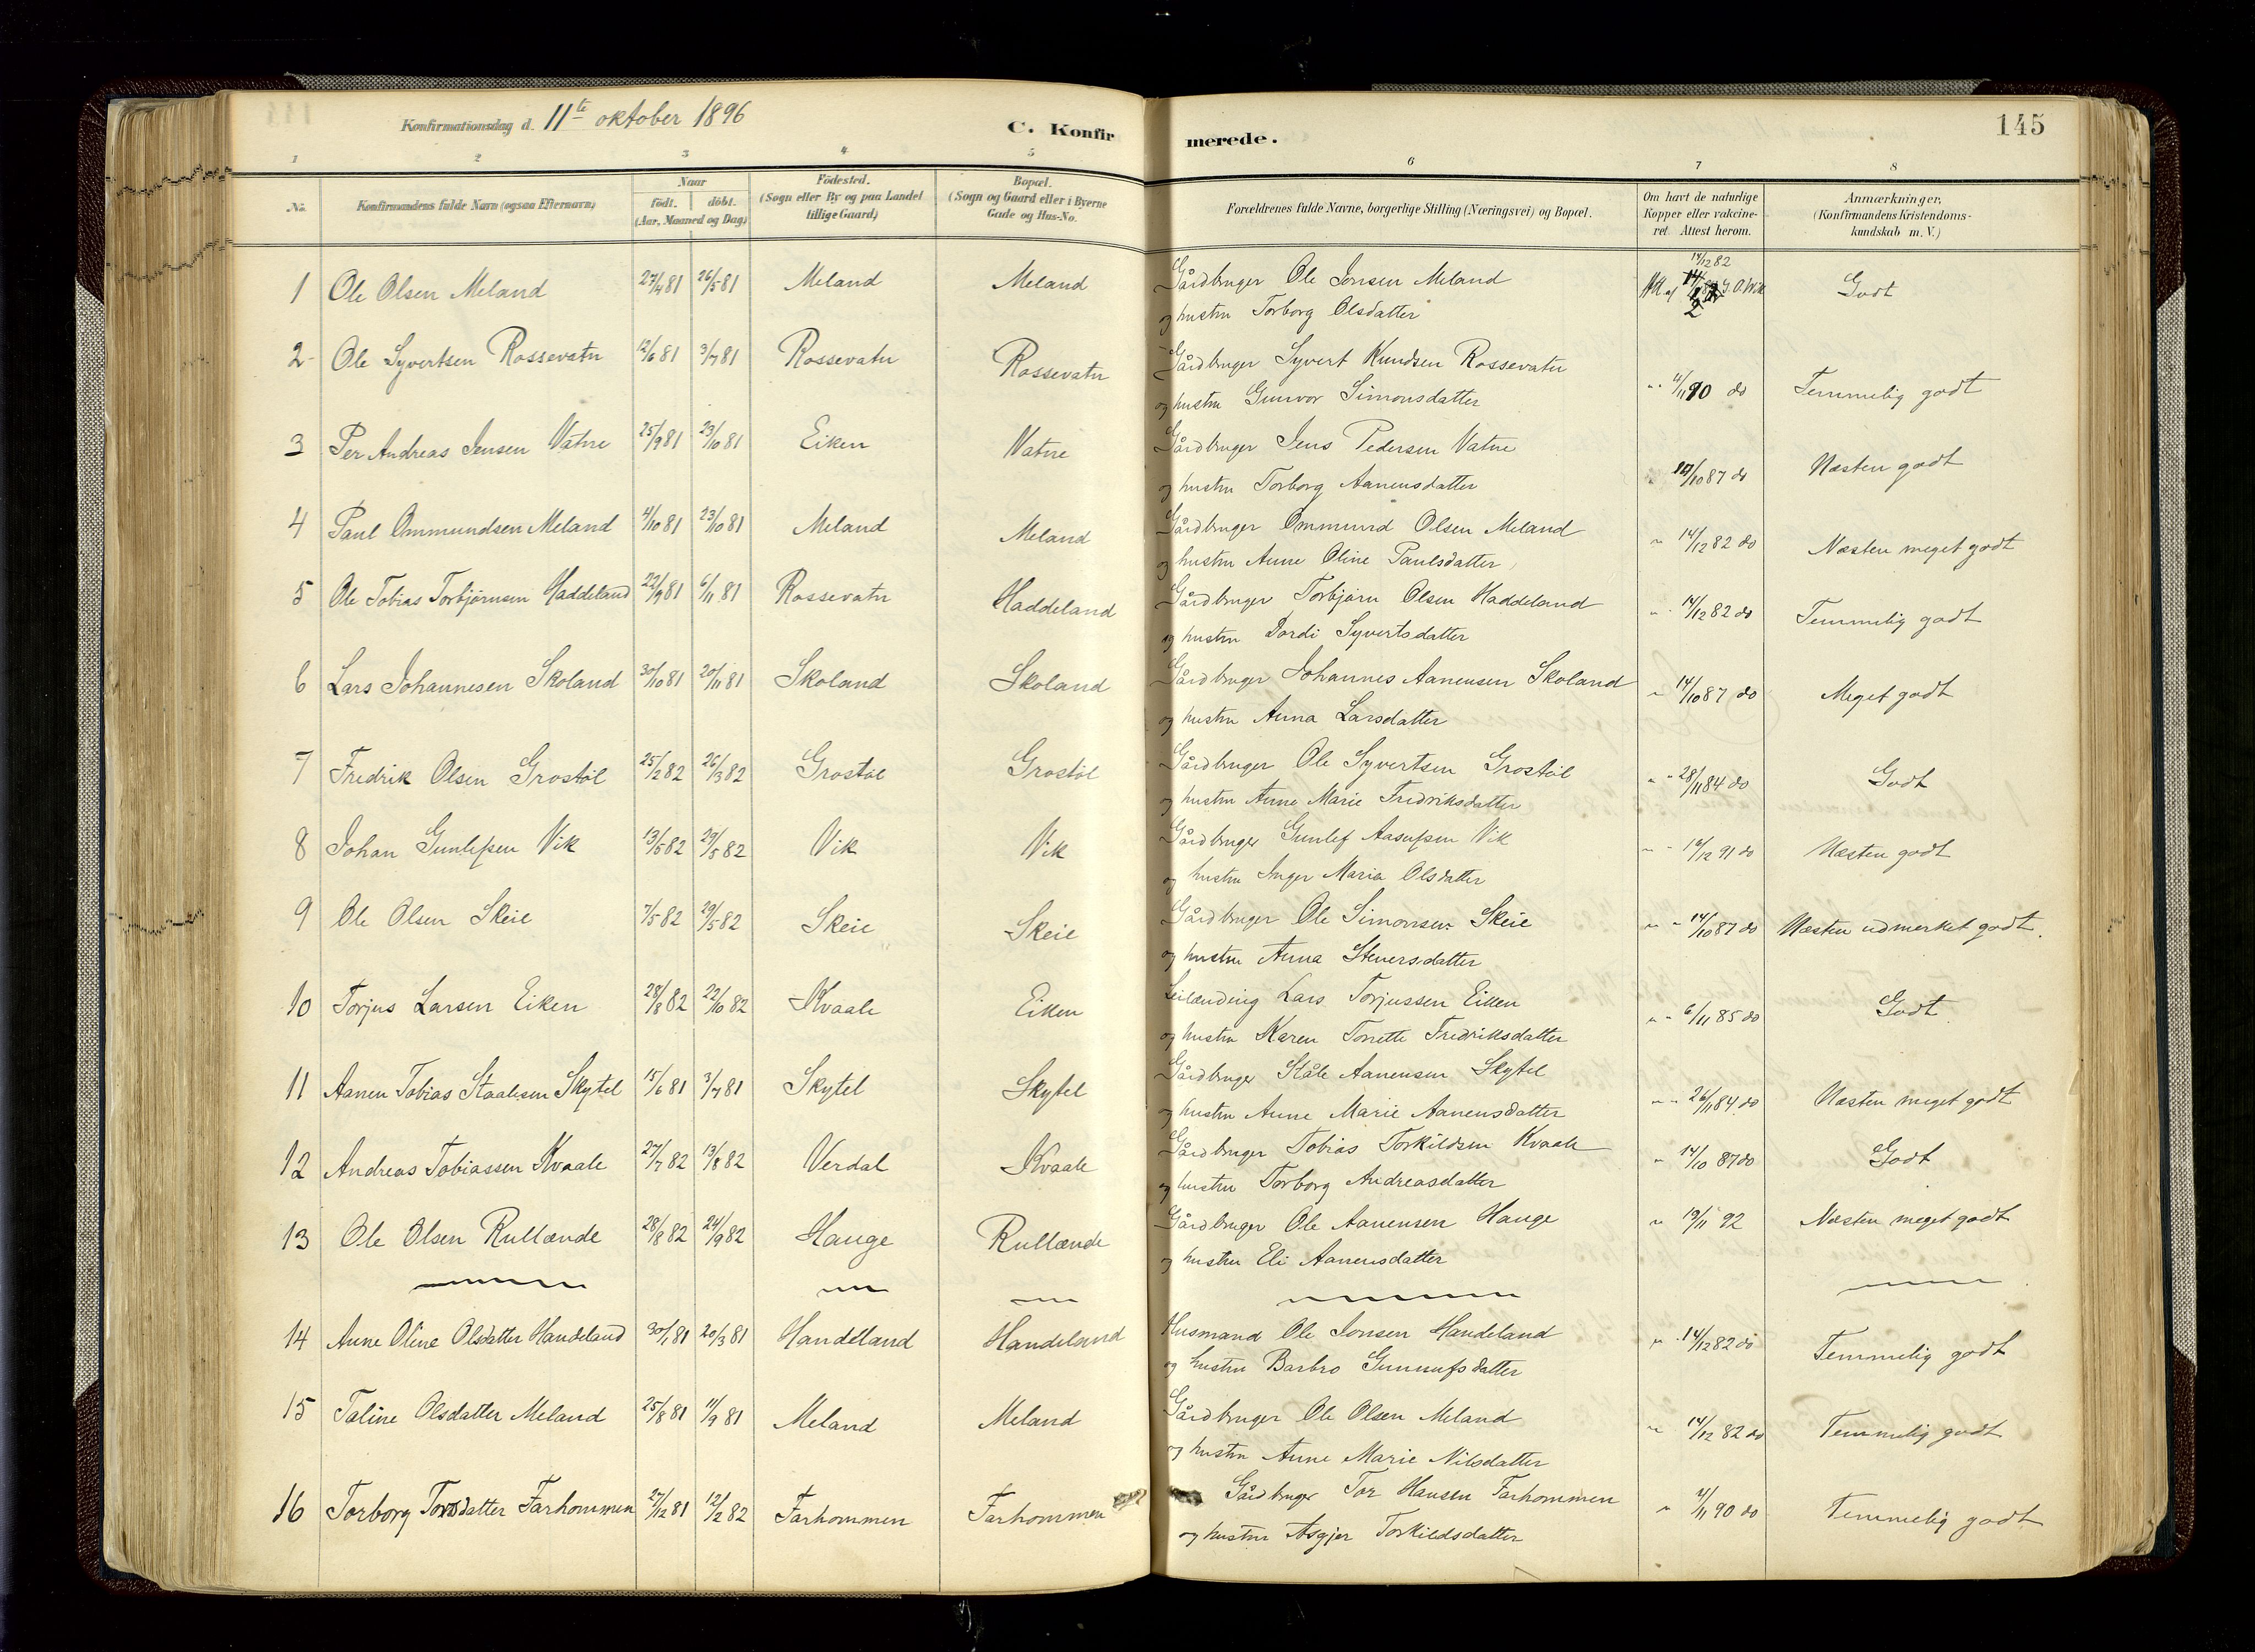 Konfirmationsdag d. 11te oktober 1896
C. Konfir merede.
145
1 2 3 4 5 6 7 8
No. Konfirmandens fulde Navn (ogsaa Efternavn) Naar født. døbt. (Aar, Maaned og Dag) Fødested. (Sogn eller By og paa Landet tillige Gaard) Bopæl. (Sogn og Gaard eller i Byerne Gade og Hus-No. Forældrenes fulde Navne, borgerlige Stilling (Næringsvei) og Bopæl. Om havt de naturlige Kopper eller vakcineret. Attest herom. Anmærkninger, (Konfirmandens Kristendomskundskab m. V.)
1 Ole Olsen Meland 27/4 81 26/5 81 Meland Meland Gårdbruger Ole Jonsen Meland 14/12 82 Godt
og hustru Torborg Olsdatter
2 Ole Syvertsen Rossevatn 12/6 81 3/7 81 Rossevatn Rossevatn Gårdbruger Syvert Knudsen Rossevatn
og hustru Gunvor Simonsdatter " 4/11 90 do Temmelig godt
3 Per Andreas Jensen Vatne 25/9 81 23/10 81 Eiken Vatne Gårdbruger Jens Pedersen Vatne
og hustru Torborg Aanensdatter " 14/10 87 do Næsten godt
4 Paul Ommundsen Meland 4/10 81 23/10 81 Meland Meland Gårdbruger Ommund Olsen Meland
og hustru Anne Oline Paulsdatter " 14/12 82 do Næsten meget godt
5 Ole Tobias Torbjørnsen Haddeland 22/9 81 6/11 81 Rossevatn Haddeland Gårdbruger Torbjørn Olsen Haddeland
og hustru Dordi Syvertsdatter " 14/12 82 do Temmelig godt
6 Lars Johannesen Skoland 30/10 81 20/11 81 Skoland Skoland Gårdbruger Johannes Aanensen Skoland
og hustru Anna Larsdatter " 14/10 87 do Meget godt
7 Fredrik Olsen Grostøl 25/2 82 26/3 82 Grostøl Grostøl Gårdbruger Ole Syvertsen Grostøl
og hustru Anne Marie Fredriksdatter " " 28/11 84 do Godt
8 Johan Gunlefsen Vik 13/5 82 29/5 82 Vik Vik Gårdbruger Gunlef Aasufsen Vik
og hustru Inger Maria Olsdatter " " 16/12 91 do Næsten godt
9 Ole Olsen Skeie 7/5 82 29/5 82 Skeie Skeie Gårdbruger Ole Simonsen Skeie
og hustru Anna Stenersdatter " " 14/10 87 do Næsten udmerket godt.
10 Torjus Larsen Eiken 28/8 82 22/10 82 Kvaale Eiken Leilænding Lars Torjussen Eiken
og hustru Karen Tonette Fredriksdatter " " 6/11 85 do Godt
11 Aanen Tobias Staalesen Skytel 15/6 81 3/7 81 Skytel Skytel Gårdbruger Ståle Aanensen Skytel
og hustru Anne Marie Aanensdatter " " 26/11 84 do Næsten meget godt
12 Andreas Tobiassen Kvaale 27/7 82 13/8 82 Verdal Kvaale Gårdbruger Tobias Torkildsen Kvaale
og hustru Torborg Andreasdatter " 14/10 87 do Godt
13 Ole Olsen Rullænde 28/8 82 24/9 82 Hauge Rullænde Gårdbruger Ole Aanensen Hauge " 19/11 92 Næsten meget godt
og hustru Eli Aanensdatter
14 Anne Oline Olsdatter Handeland 30/1 81 20/3 81 Handeland Handeland Husmand Ole Jonsen Handeland
og hustru Barbro Gunnufsdatter " 14/12 82 do Temmelig godt
15 Taline Olsdatter Meland 25/8 81 11/9 81 Meland Meland Gårdbruger Ole Olsen Meland
og hustru Anne Marie Nilsdatter " 14/12 82 do Temmelig godt
16 Torborg Torsdatter Farhommen 27/12 81 12/2 82 Farhommen Farhommen Gårdbruger Tor Hansen Farhommen
og hustru Asgjer Torkildsdatter " 4/11 90 do Temmelig godt